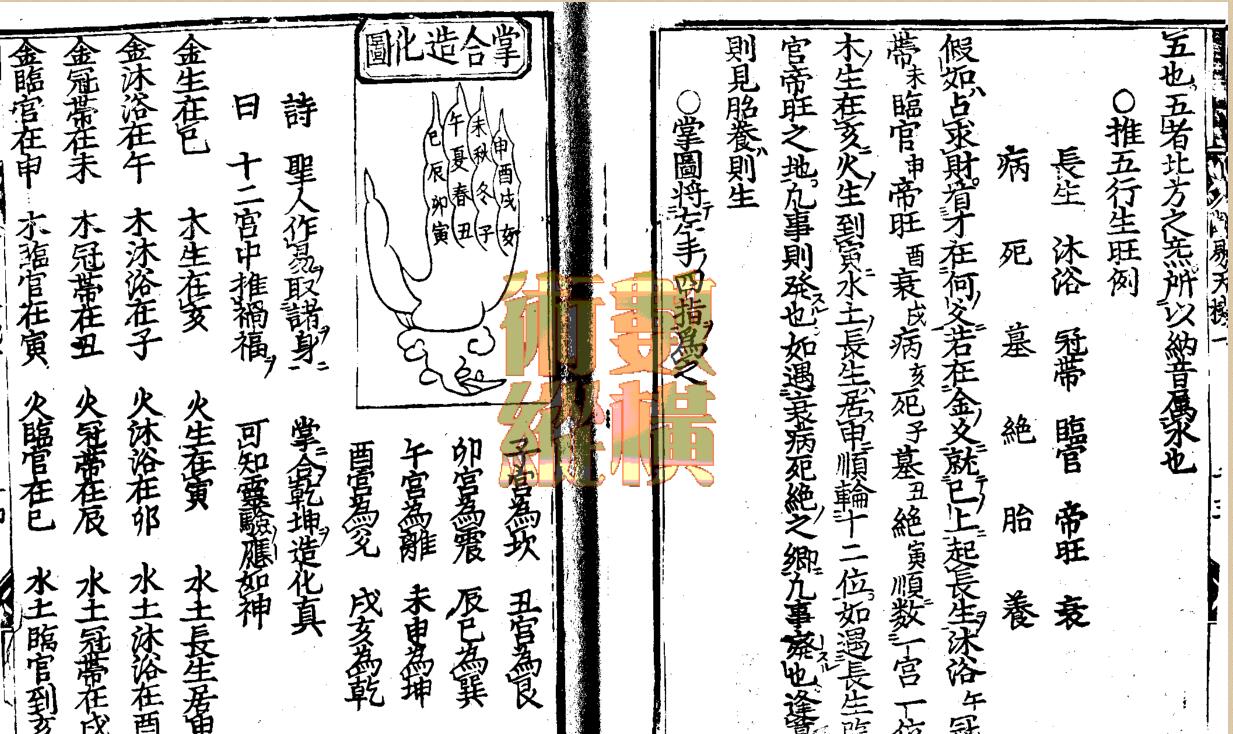 五也五者北方之炁所以納音属水也
○推五行生旺例
長生 沐浴 冠帶 臨官 帝旺 衰
病 死 墓 絶 胎 養
假如占求財看才在何爻若在金爻就巳上起長生沐浴午冠
帶未臨官申帝旺酉衰戌病亥死子墓丑絶寅順数一宮一位
木生在亥火生到寅水土長生居申順輪十二位如遇長生臨
官帝旺之地九事則発也如遇衰病死絶之郷九事廃也逢墓
則見胎養則生
○掌圖將左手四指爲之
掌合造化圖
申酉戌亥
未秋冬子
午夏春丑
巳辰卯寅
子宮為坎 丑宮為艮
卯宮為震 辰巳為巽
午宮為離 未申為坤
酉宮為兌 戌亥為乾
詩 聖人作易取諸身 掌合乾坤造化真
曰 十二宮中推禍福 可知靈驗應如神
金生在巳 木生在亥 火生在寅 水土長生居申
金沐浴在午 木沐浴在子 火沐浴在卯 水土沐浴在酉
金冠帶在未 木冠帶在丑 火冠帶在辰 水土冠帶在戌
金臨官在申 木臨官在寅 火臨官在巳 水土臨官到亥
數術縱橫